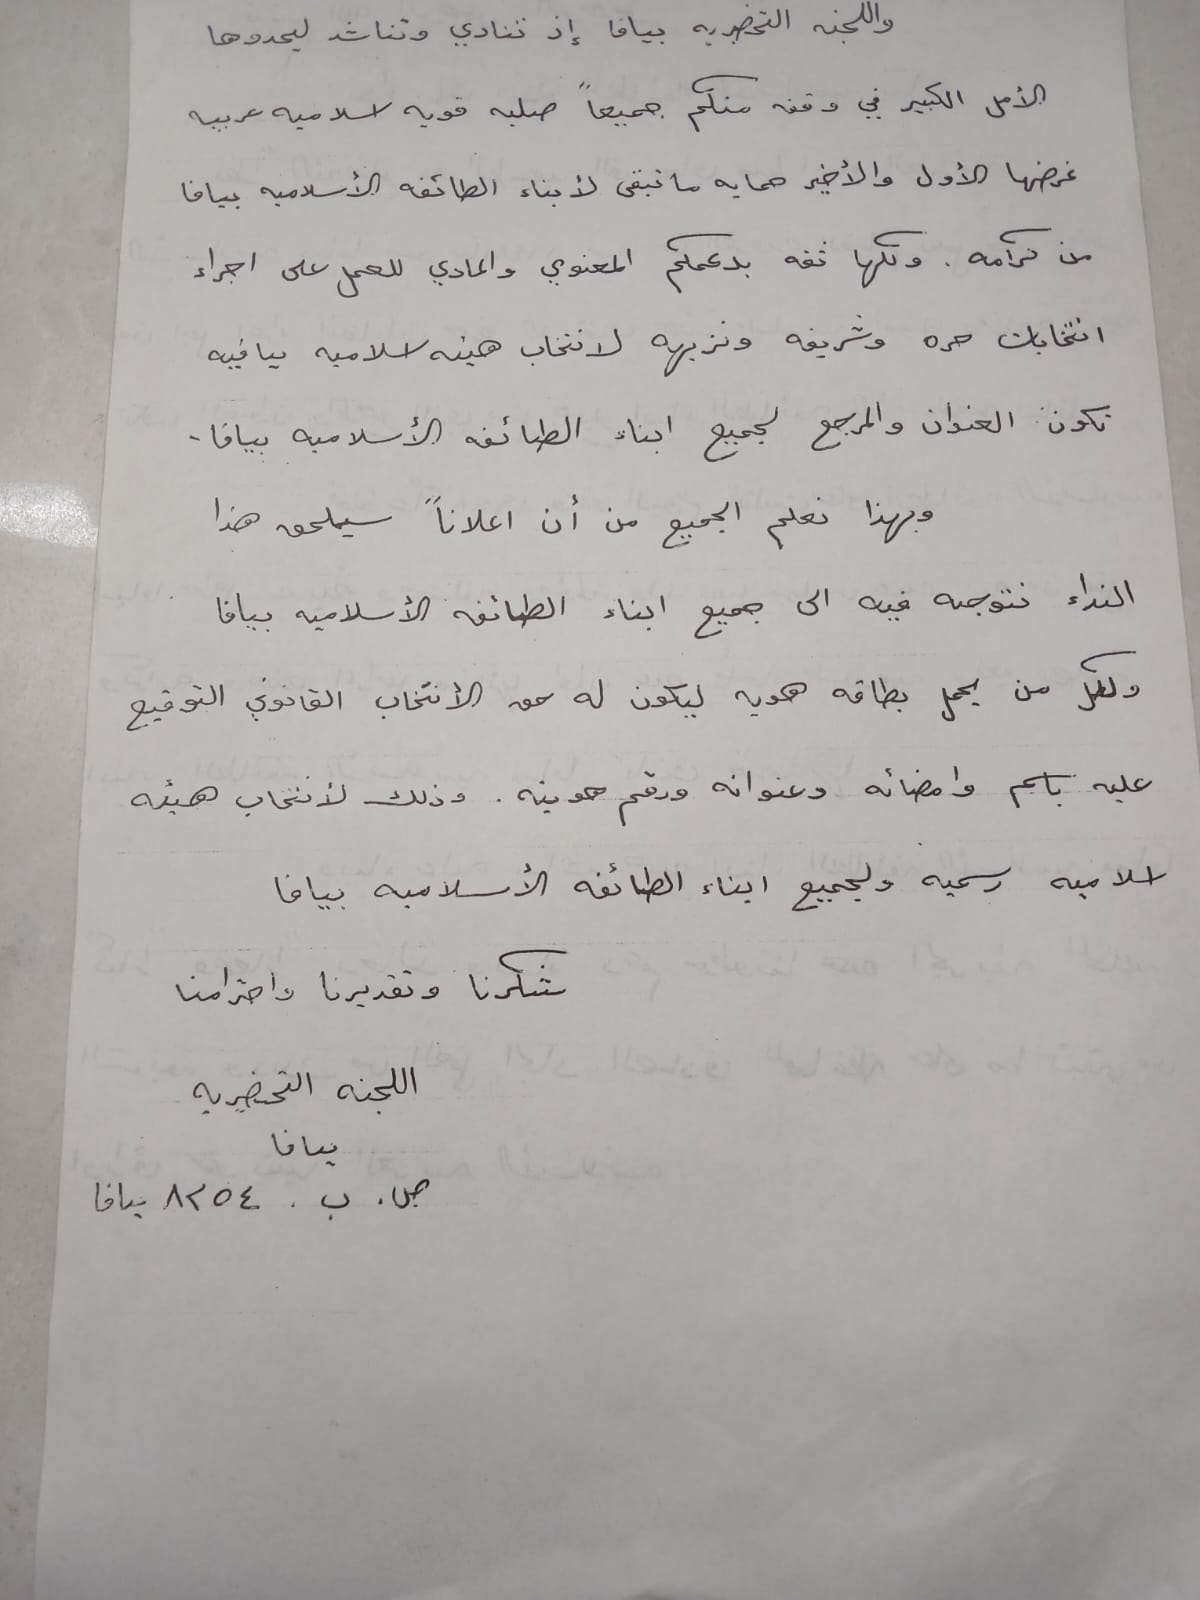 واللجنه التحضيريه بيافا إذ تنادي وتناشد ليحدوها
الأمل الكبير في وقفه منكم جميعاً صلبه قويه اسلاميه عربيه
غرضها الأول والأخير حمايه ما تبقى لأبناء الطائفه الأسلاميه بيافا
من كرامه. وكلها ثقه بدعمكم المعنوي والمادي للعمل على اجراء
انتخابات حره وشريفه ونزيهه لانتخاب هيئه اسلاميه يافيه
تكون العنوان والمرجع لجميع ابناء الطائفه الأسلاميه بيافا.
وبهذا نعلم الجميع من أن اعلاناً سيلحق هذا
النداء نتوجه فيه الى جميع ابناء الطائفه الأسلاميه بيافا
ولكل من يحمل بطاقه هويه ليكون له حق الأنتخاب القانوني التوقيع
عليه باسم وامضائه وعنوانه ورقم هويته. وذلك لأنتخاب هيئه
اسلاميه رسميه ولجميع ابناء الطائفه الأسلاميه بيافا
شكرنا وتقديرنا واحترامنا
اللجنه التحضيريه
يافا
ص. ب. ٨٢٥٤ يافا